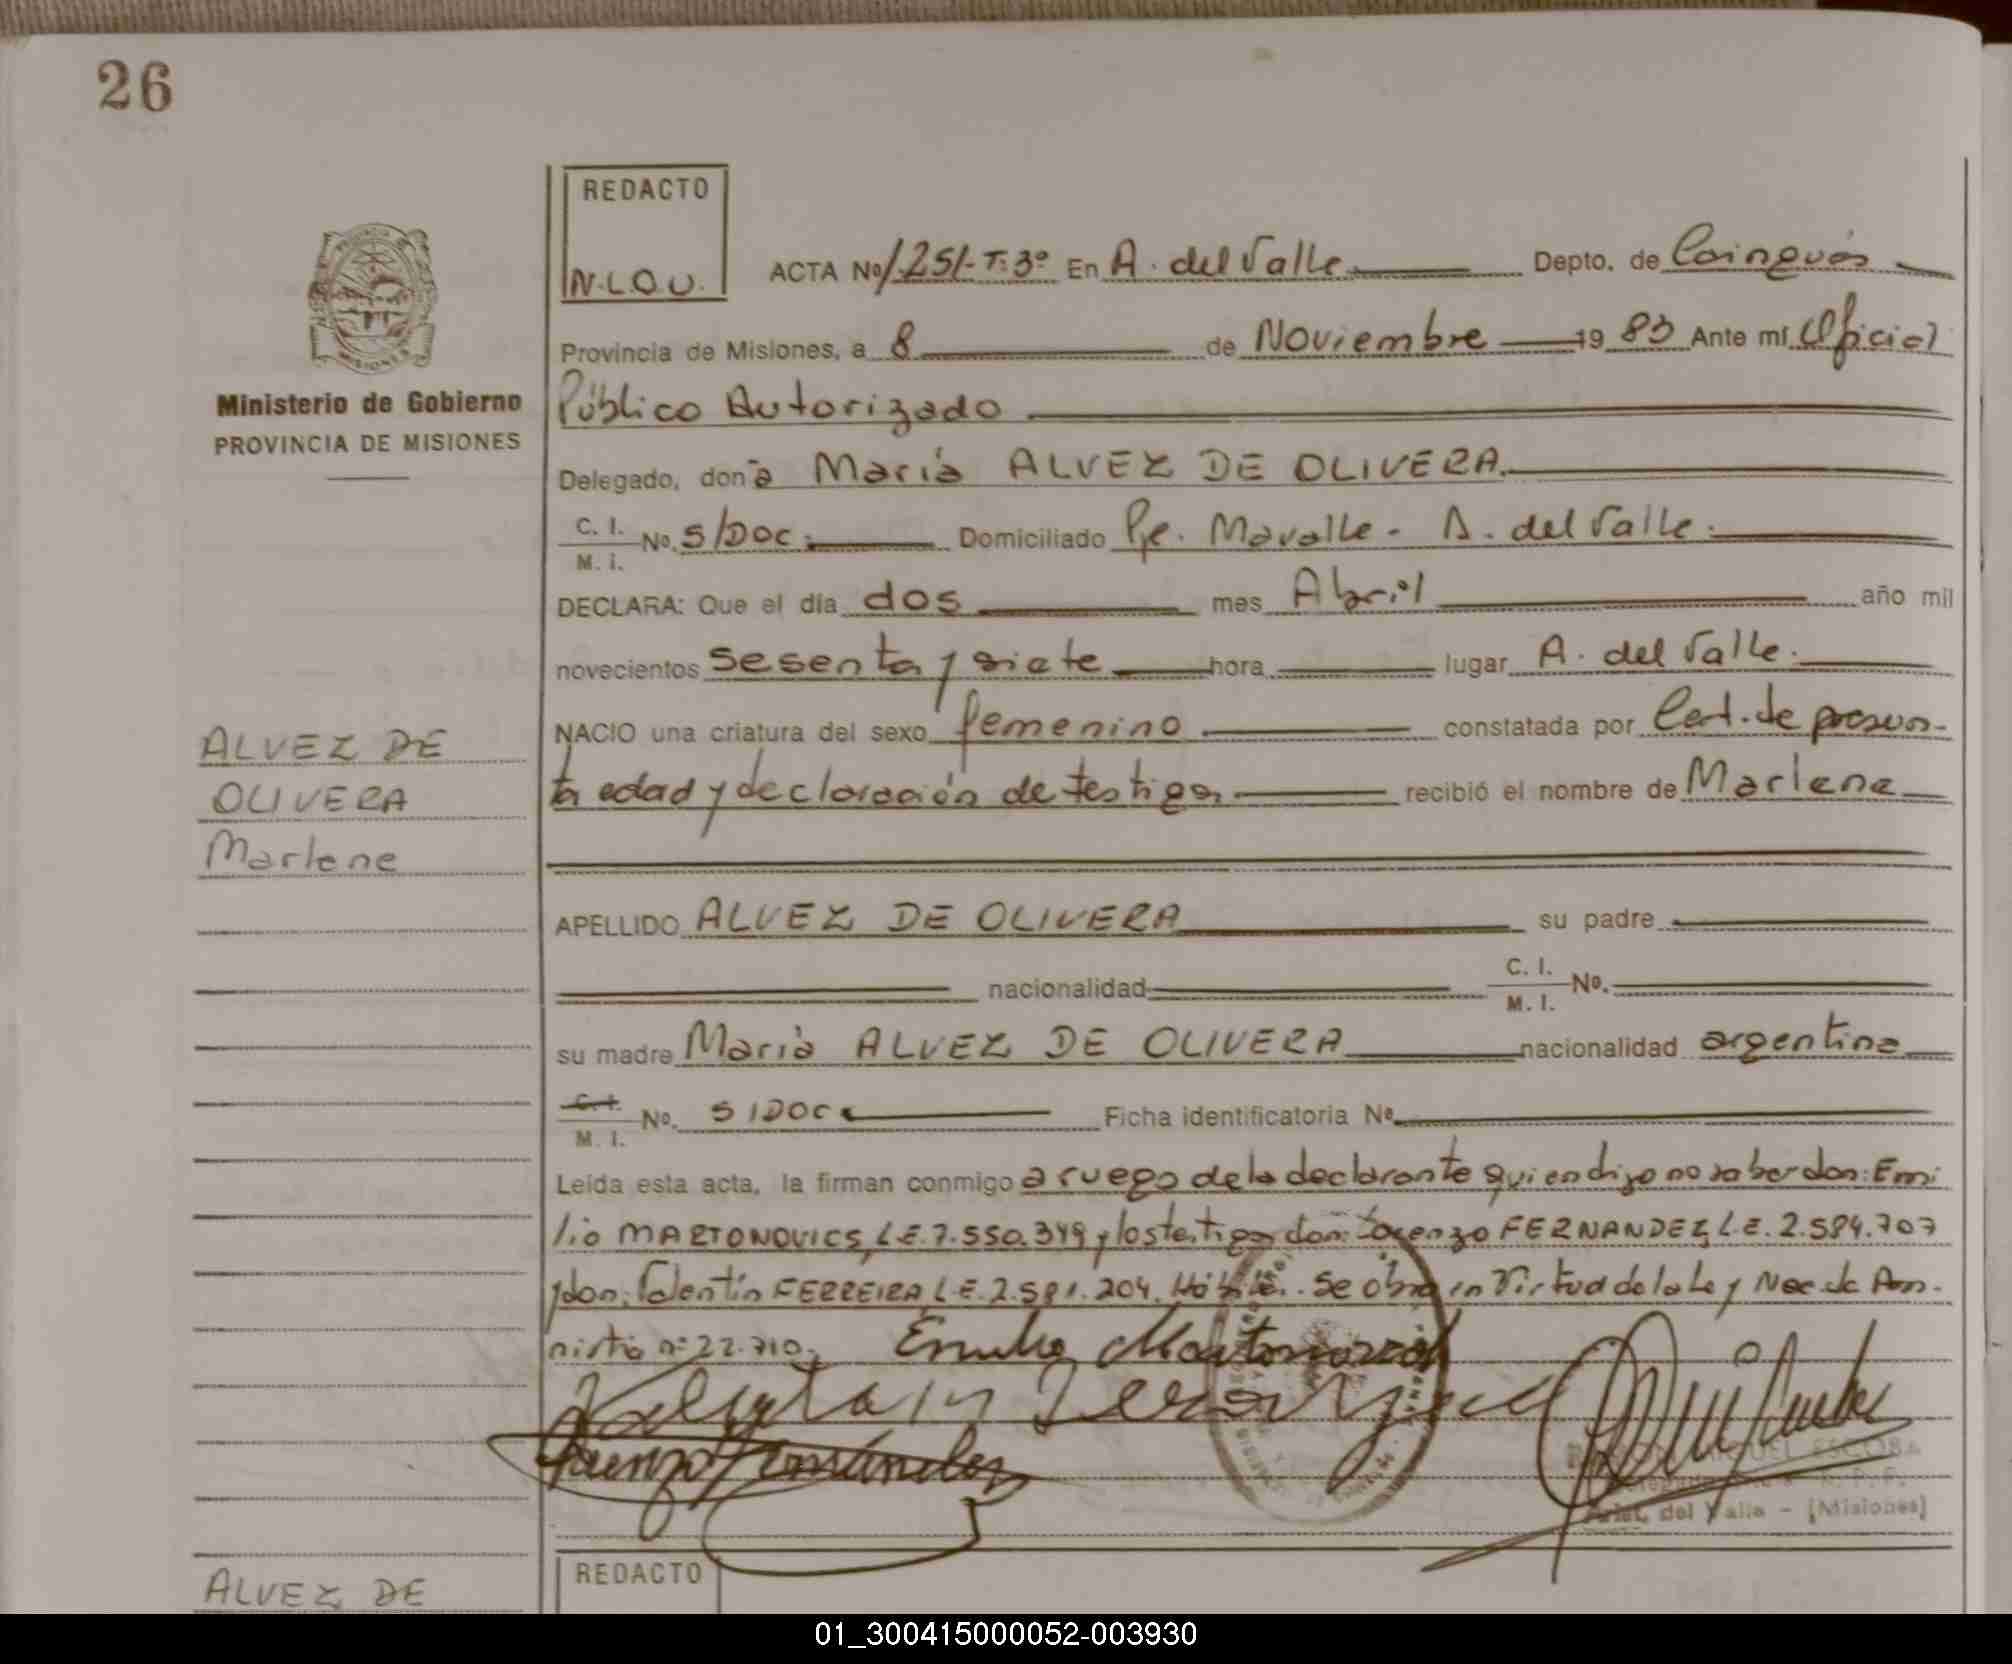 26
REDACTO
N.L.O.U.
ACTA No 1.251-T:3º En A. del Valle Depto. de Cainguás
Provincia de Misiones, a 8 de Noviembre 1983 Ante mí Oficial
Ministerio de Gobierno
PROVINCIA DE MISIONES
Público Autorizado
Delegado, doña María ALVEZ DE OLIVERA.
C. I.
M. I.
No. S/DOC. Domiciliado Pje. Mavalle - A. del Valle.
DECLARA: Que el día dos mes Abril año mil
novecientos sesenta y siete hora lugar A. del Valle.
NACIO una criatura del sexo femenino constatada por Cert. de presun-
ta edad y declaración de testigos recibió el nombre de Marlene
ALVEZ DE
OLIVERA
Marlene
APELLIDO ALVEZ DE OLIVERA su padre
nacionalidad C. I.
M. I. No.
su madre María ALVEZ DE OLIVERA nacionalidad argentina
C. I.
M. I.
No. S/DOC. Ficha identificatoria Nº
Leída esta acta, la firman conmigo a ruego de la declarante quien dijo no saber don: Emi
lio MARTONOVICS, L.E. 7.550.349 y los testigos don: Lorenzo FERNANDEZ, L.E. 2.584.707
y don: Valentín FERREIRA L.E. 2.581.204. Hábiles. Se obra en Virtud de la Ley Nac. de Am-
nistía nº 22.710.
Emilio
Lorenzo Fernández
MIGUEL ESCOBA
R. P. F.
Arist. del Valle - (Misiones)
REDACTO
ALVEZ DE
01_300415000052-003930